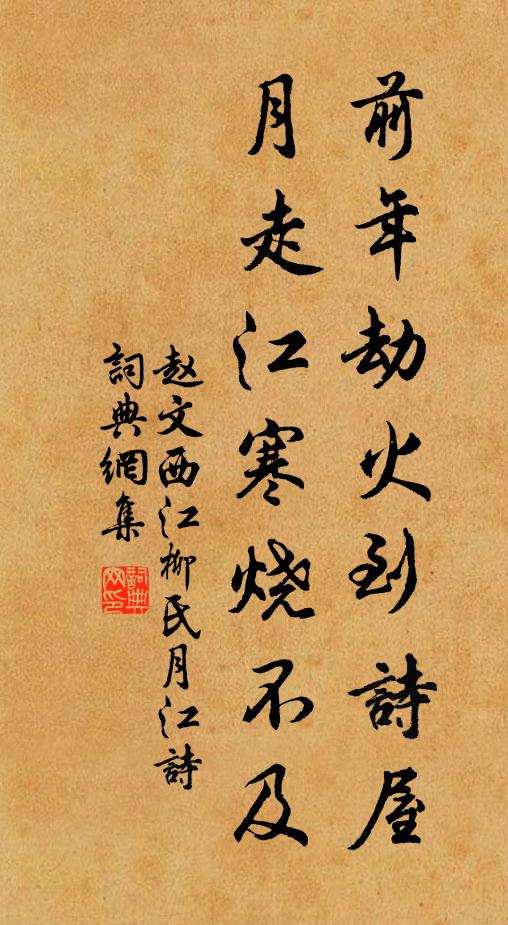 前年劫火到詩屋
月走江寒燒不及
赵文西江柳氏月江詩
詞典網集
詞典网印